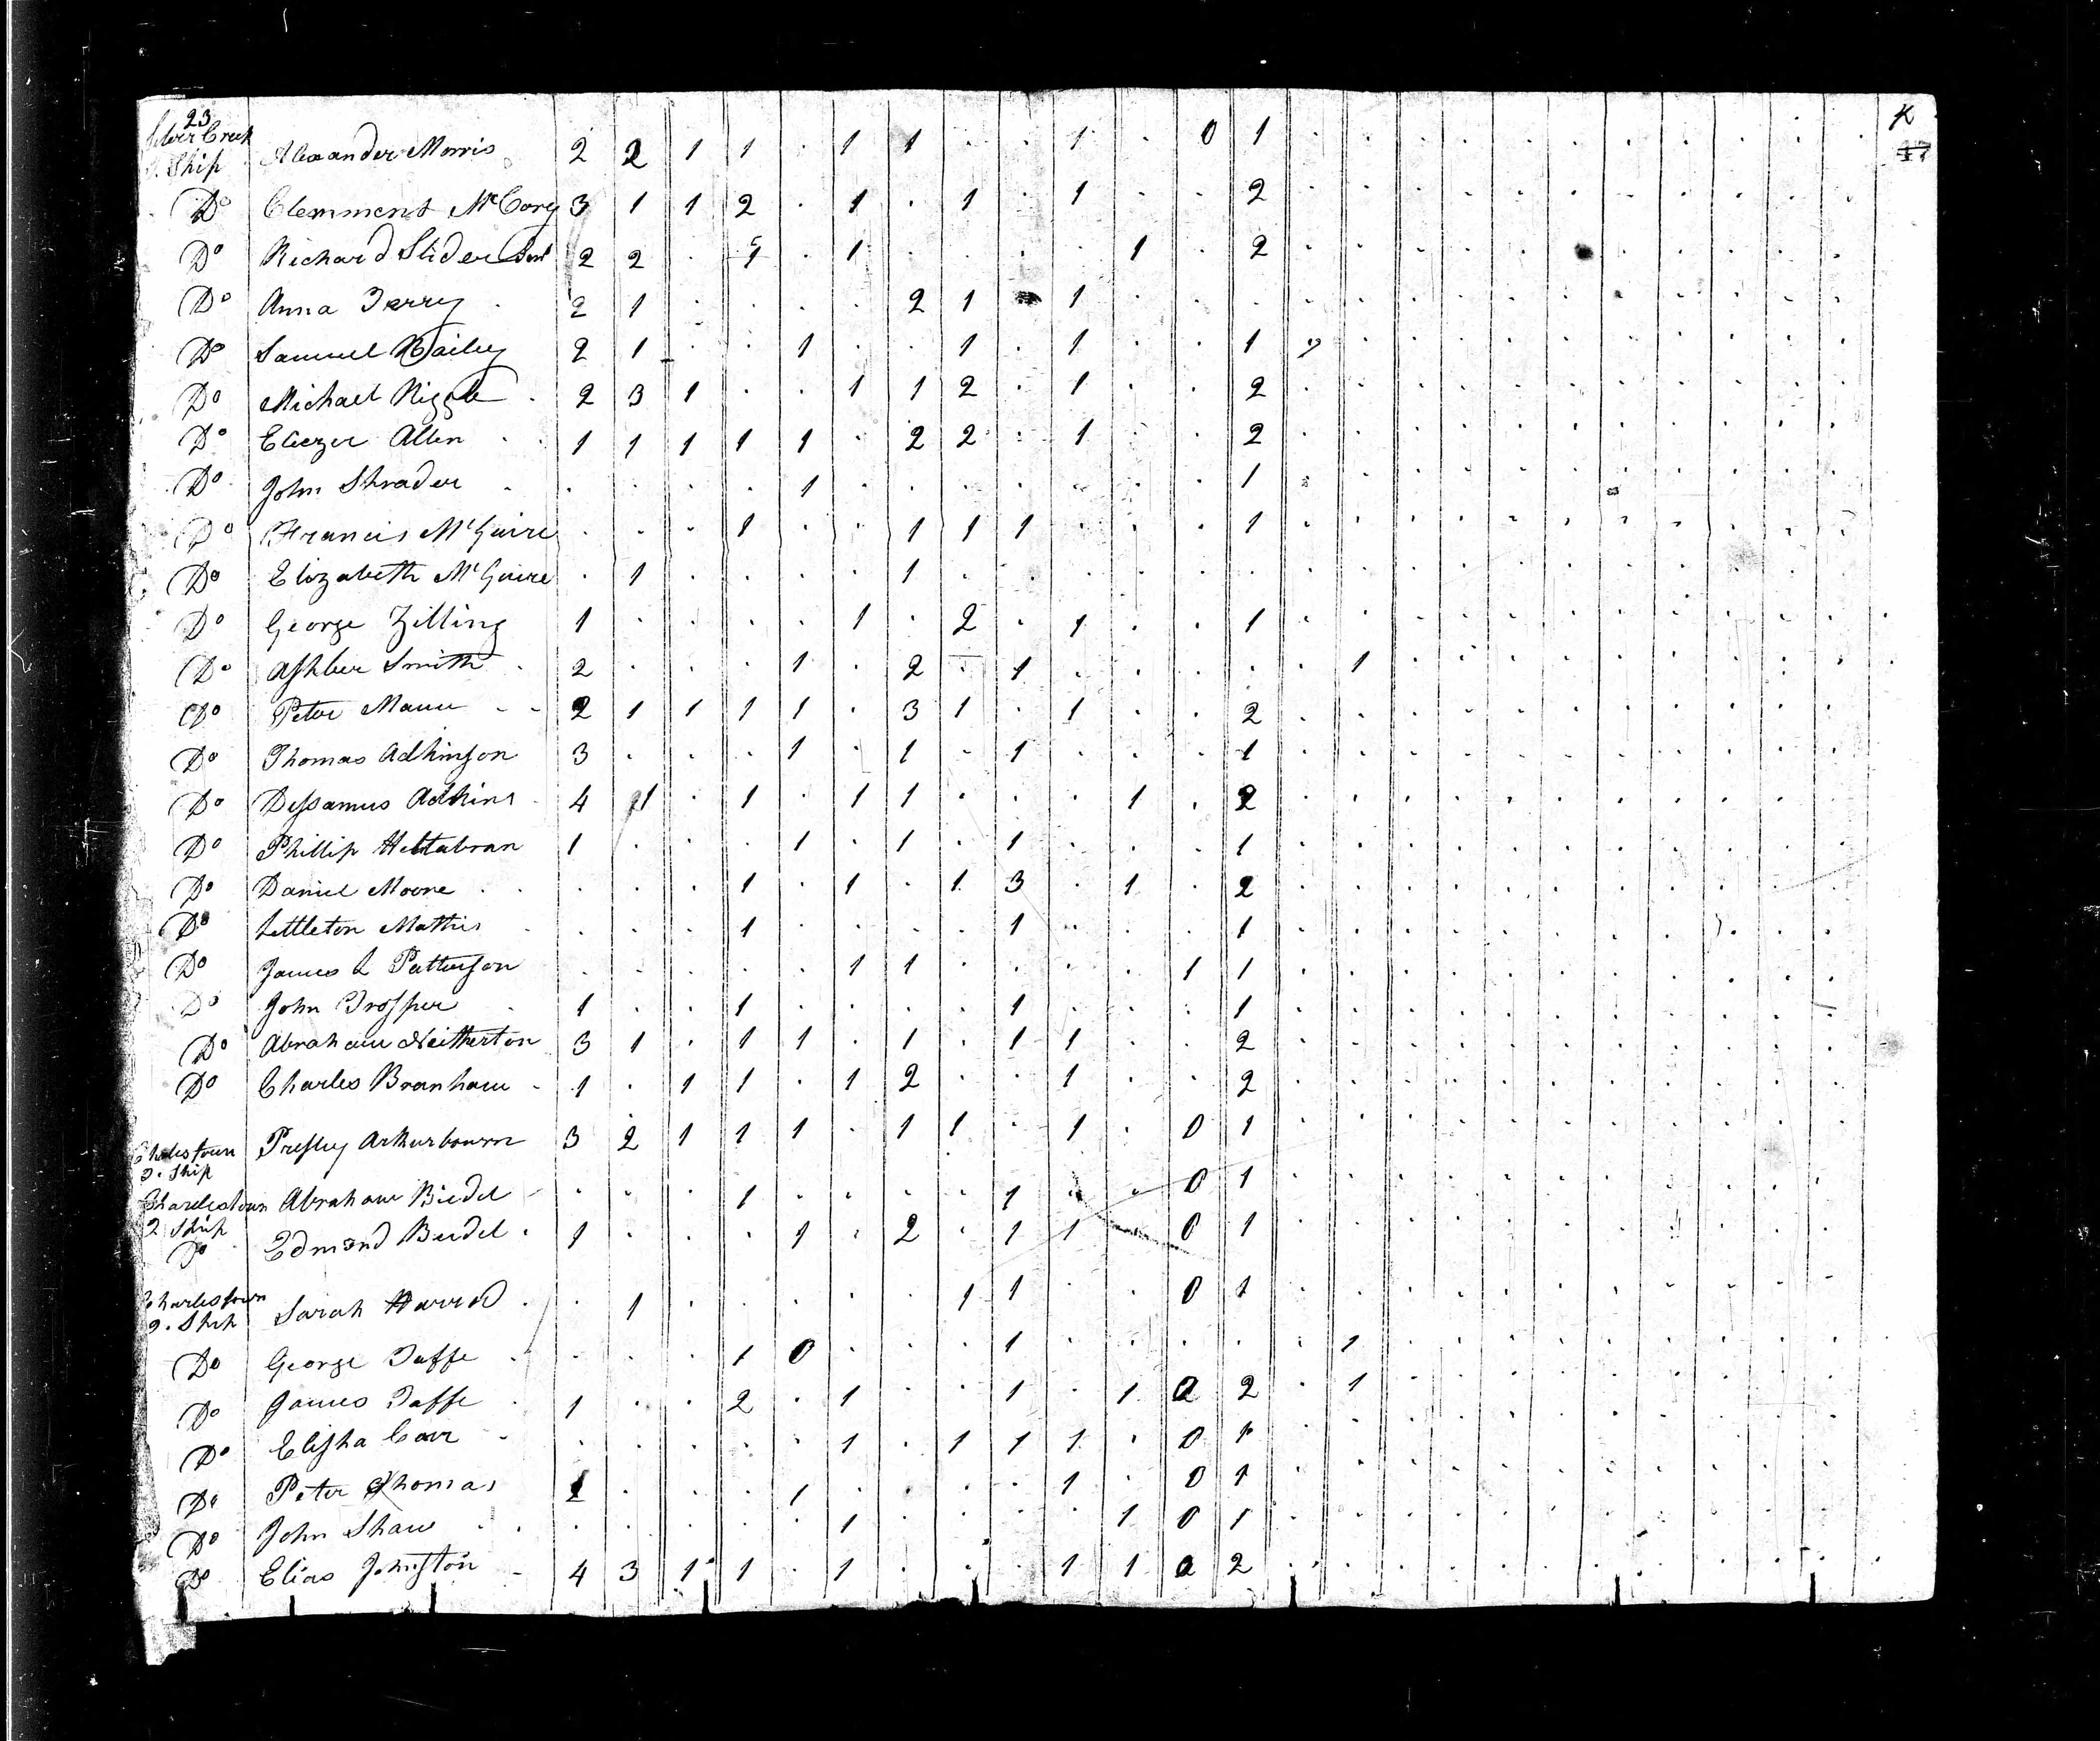 23
Silver Creek
T. Ship Alexander Morris 2 2 1 1 . 1 1 . . 1 . 0 1
K
Do Clemment McCory 3 1 1 2 . 1 . 1 . 1 . . 2
Do Richard Slider Senr 2 2 . 1 . 1 . . . . 1 . 2
Do Anna Terry 2 1 . . . . 2 1 . 1 . . .
Do Samuel Bailey 2 1 . . 1 . . 1 . 1 . . 1
Do Michael Riggle 2 3 1 . . 1 1 2 . 1 . . 2
Do Eliezer Allen 1 1 1 1 1 . 2 2 . 1 . . 2
Do John Shrader . . . . 1 . . . . . . . 1
Do Francis McGuire . . . 1 . . 1 1 1 . . . 1
Do Elizabeth McGuire . 1 . . . . 1 . . . . . .
Do George Zilling 1 . . . . 1 . 2 . 1 . . 1
Do Ashber Smith 2 . . . 1 . 2 . 1 . . . . . 1
Do Peter Mauu 2 1 1 1 1 . 3 1 . 1 . . 2
Do Thomas Adkinson 3 . . . 1 . 1 . 1 . . . 1
Do Dessamus Adkins 4 1 . 1 . 1 1 . . . 1 . 2
Do Phillip Heltabran 1 . . . 1 . 1 . 1 . . . 1
Do Daniel Moore . . . 1 . 1 . 1 3 . 1 . 2
Do Littleton Mathis . . . 1 . . . . 1 . . . 1
Do James L Patterson . . . . . 1 1 . . . . 1 1
Do John Trosper 1 . . 1 . . . . 1 . . . 1
Do Abraham Neitherton 3 1 . 1 1 . 1 . 1 1 . . 2
Do Charles Branham 1 . 1 1 . 1 2 . . 1 . . 2
Charlestown
T. Ship Presley Arthurbourn 3 2 1 1 1 . 1 1 . 1 . 0 1
Charlestown
T Ship Abraham Biedel . . . 1 . . . . 1 . . 0 1
Do Edmond Beedel 1 . . . 1 . 2 . 1 1 . 0 1
Charlestown
T. Ship Sarah Harrod . 1 . . . . . 1 1 . . 0 1
Do George Taffe . . . 1 0 . . . 1 . . . . . 1
Do James Taffe 1 . . 2 . 1 . . 1 . 1 0 2 . 1
Do Elisha Carr . . . . . 1 . 1 1 1 . 0 1
Do Peter Thomas 1 . . . 1 . . . . 1 . 0 1
Do John Shaw . . . . . 1 . . . . 1 0 1
Do Elias Johnston 4 3 1 1 . 1 . . . 1 1 0 2